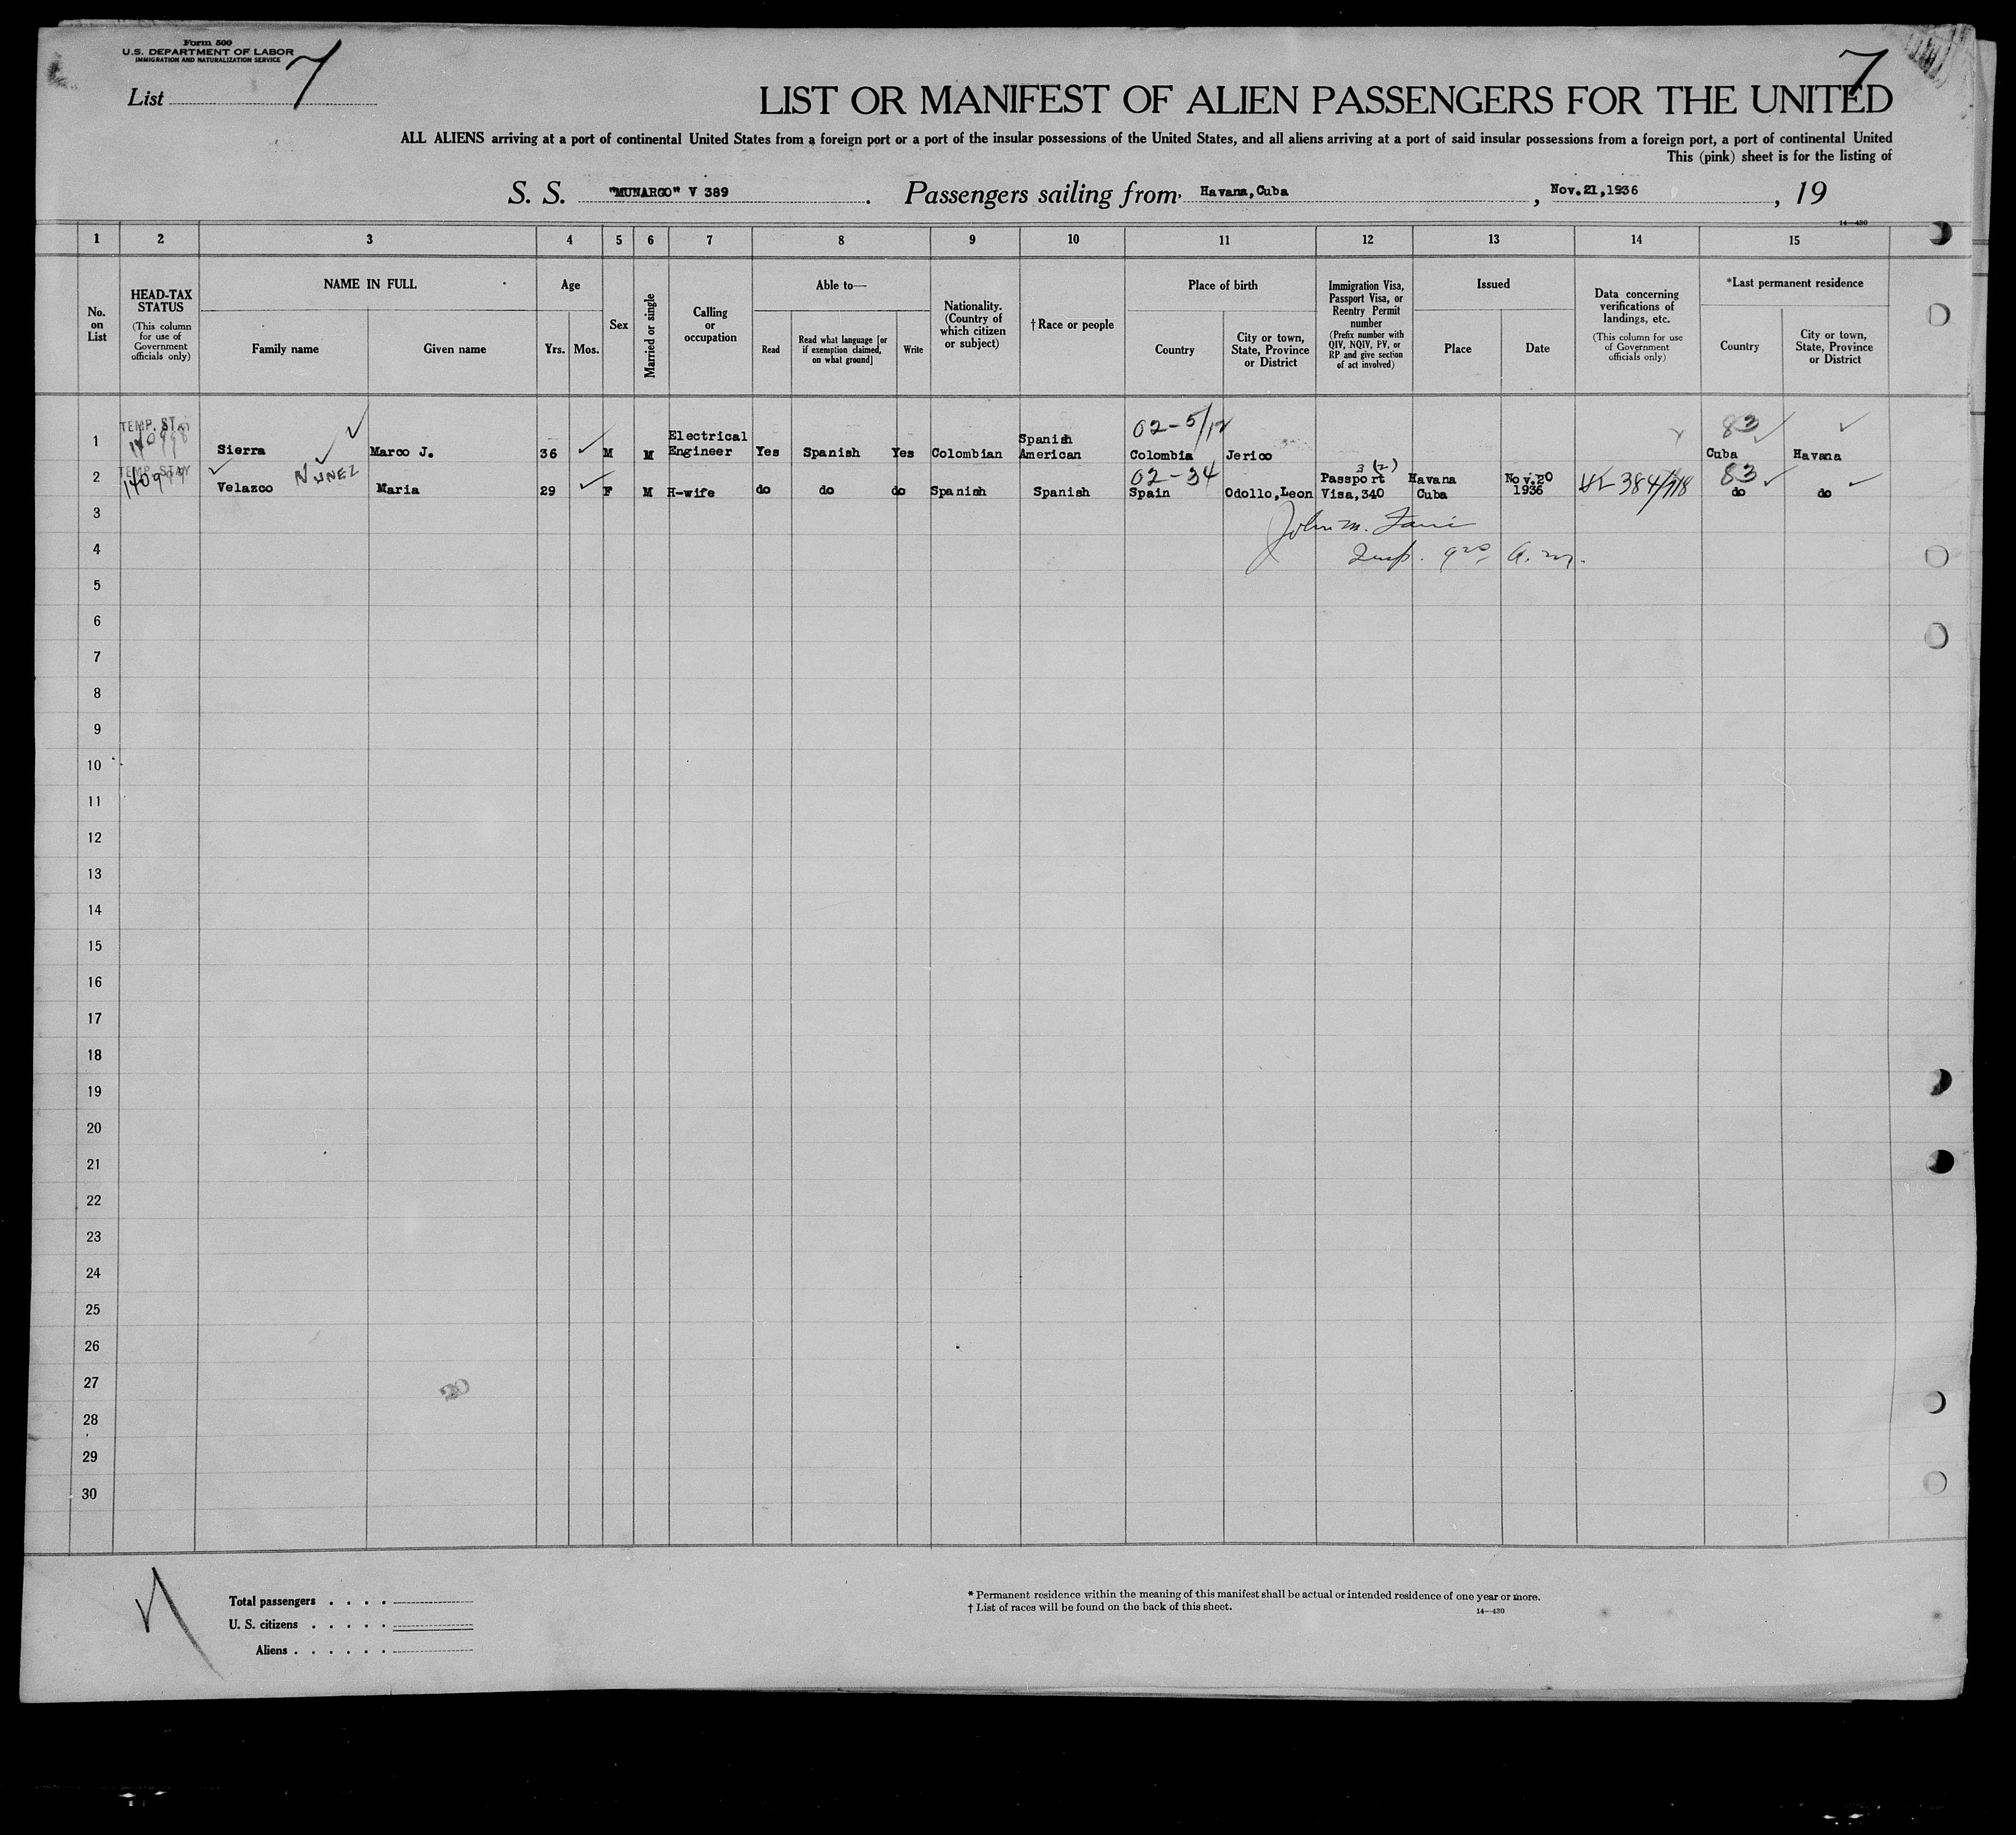 Form 500
U.S. DEPARTMENT OF LABOR
IMMIGRATION AND NATURALIZATION SERVICE
List 7
7
LIST OR MANIFEST OF ALIEN PASSENGERS FOR THE UNITED
ALL ALIENS arriving at a port of continental United States from a foreign port or a port of the insular possessions of the United States, and all aliens arriving at a port of said insular possessions from a foreign port, a port of continental United
This (pink) sheet is for the listing of
S. S. "MUNARGO" V 389 . Passengers sailing from Havana,Cuba , Nov.21,1936 , 19
14—430
1 2 3 4 5 6 7 8 9 10 11 12 13 14 15
No. on List
HEAD-TAX STATUS (This column for use of Government officials only)
NAME IN FULL
Family name
Given name
Age
Yrs. Mos.
Sex
Married or single
Calling or occupation
Able to—
Read
Read what language [or if exemption claimed, on what ground]
Write
Nationality. (Country of which citizen or subject)
† Race or people
Place of birth
Country
City or town, State, Province or District
Immigration Visa, Passport Visa, or Reentry Permit number (Prefix number with QIV, NQIV, PV, or RP and give section of act involved)
Issued
Place
Date
Data concerning verifications of landings, etc. (This column for use of Government officials only)
*Last permanent residence
Country
City or town, State, Province or District
TEMP. STAY 02-5/12 83
1 Sierra Marco J. 36 M M Electrical Engineer Yes Spanish Yes Colombian Spanish American Colombia Jerico Cuba Havana
TEMP. STAY NUNEZ 02-34 3(2) 83
2 Velazco Maria 29 F M H-wife do do do Spanish Spanish Spain Odollo,Leon Passport Visa,340 Havana Cuba Nov.20 1936 do do
3 John M.
4 Insp. 9 20 A.M.
5
6
7
8
9
10
11
12
13
14
15
16
17
18
19
20
21
22
23
24
25
26
27
28
29
30
Total passengers . . . .
U. S. citizens . . . . .
Aliens . . . . . .
* Permanent residence within the meaning of this manifest shall be actual or intended residence of one year or more.
† List of races will be found on the back of this sheet.
14—430